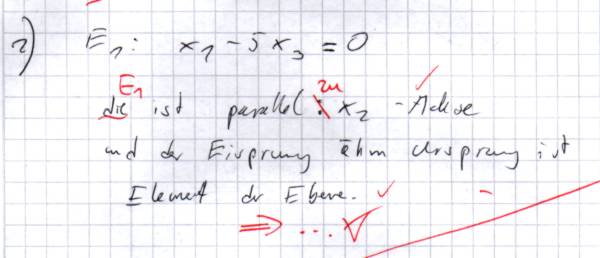 2) E₁: x₁ - 5x₃ = 0
E₁ zu
die ist parallel : x₂ - Achse
und der Eisprung ähm Ursprung ist
Element der Ebene.
⇒ ...